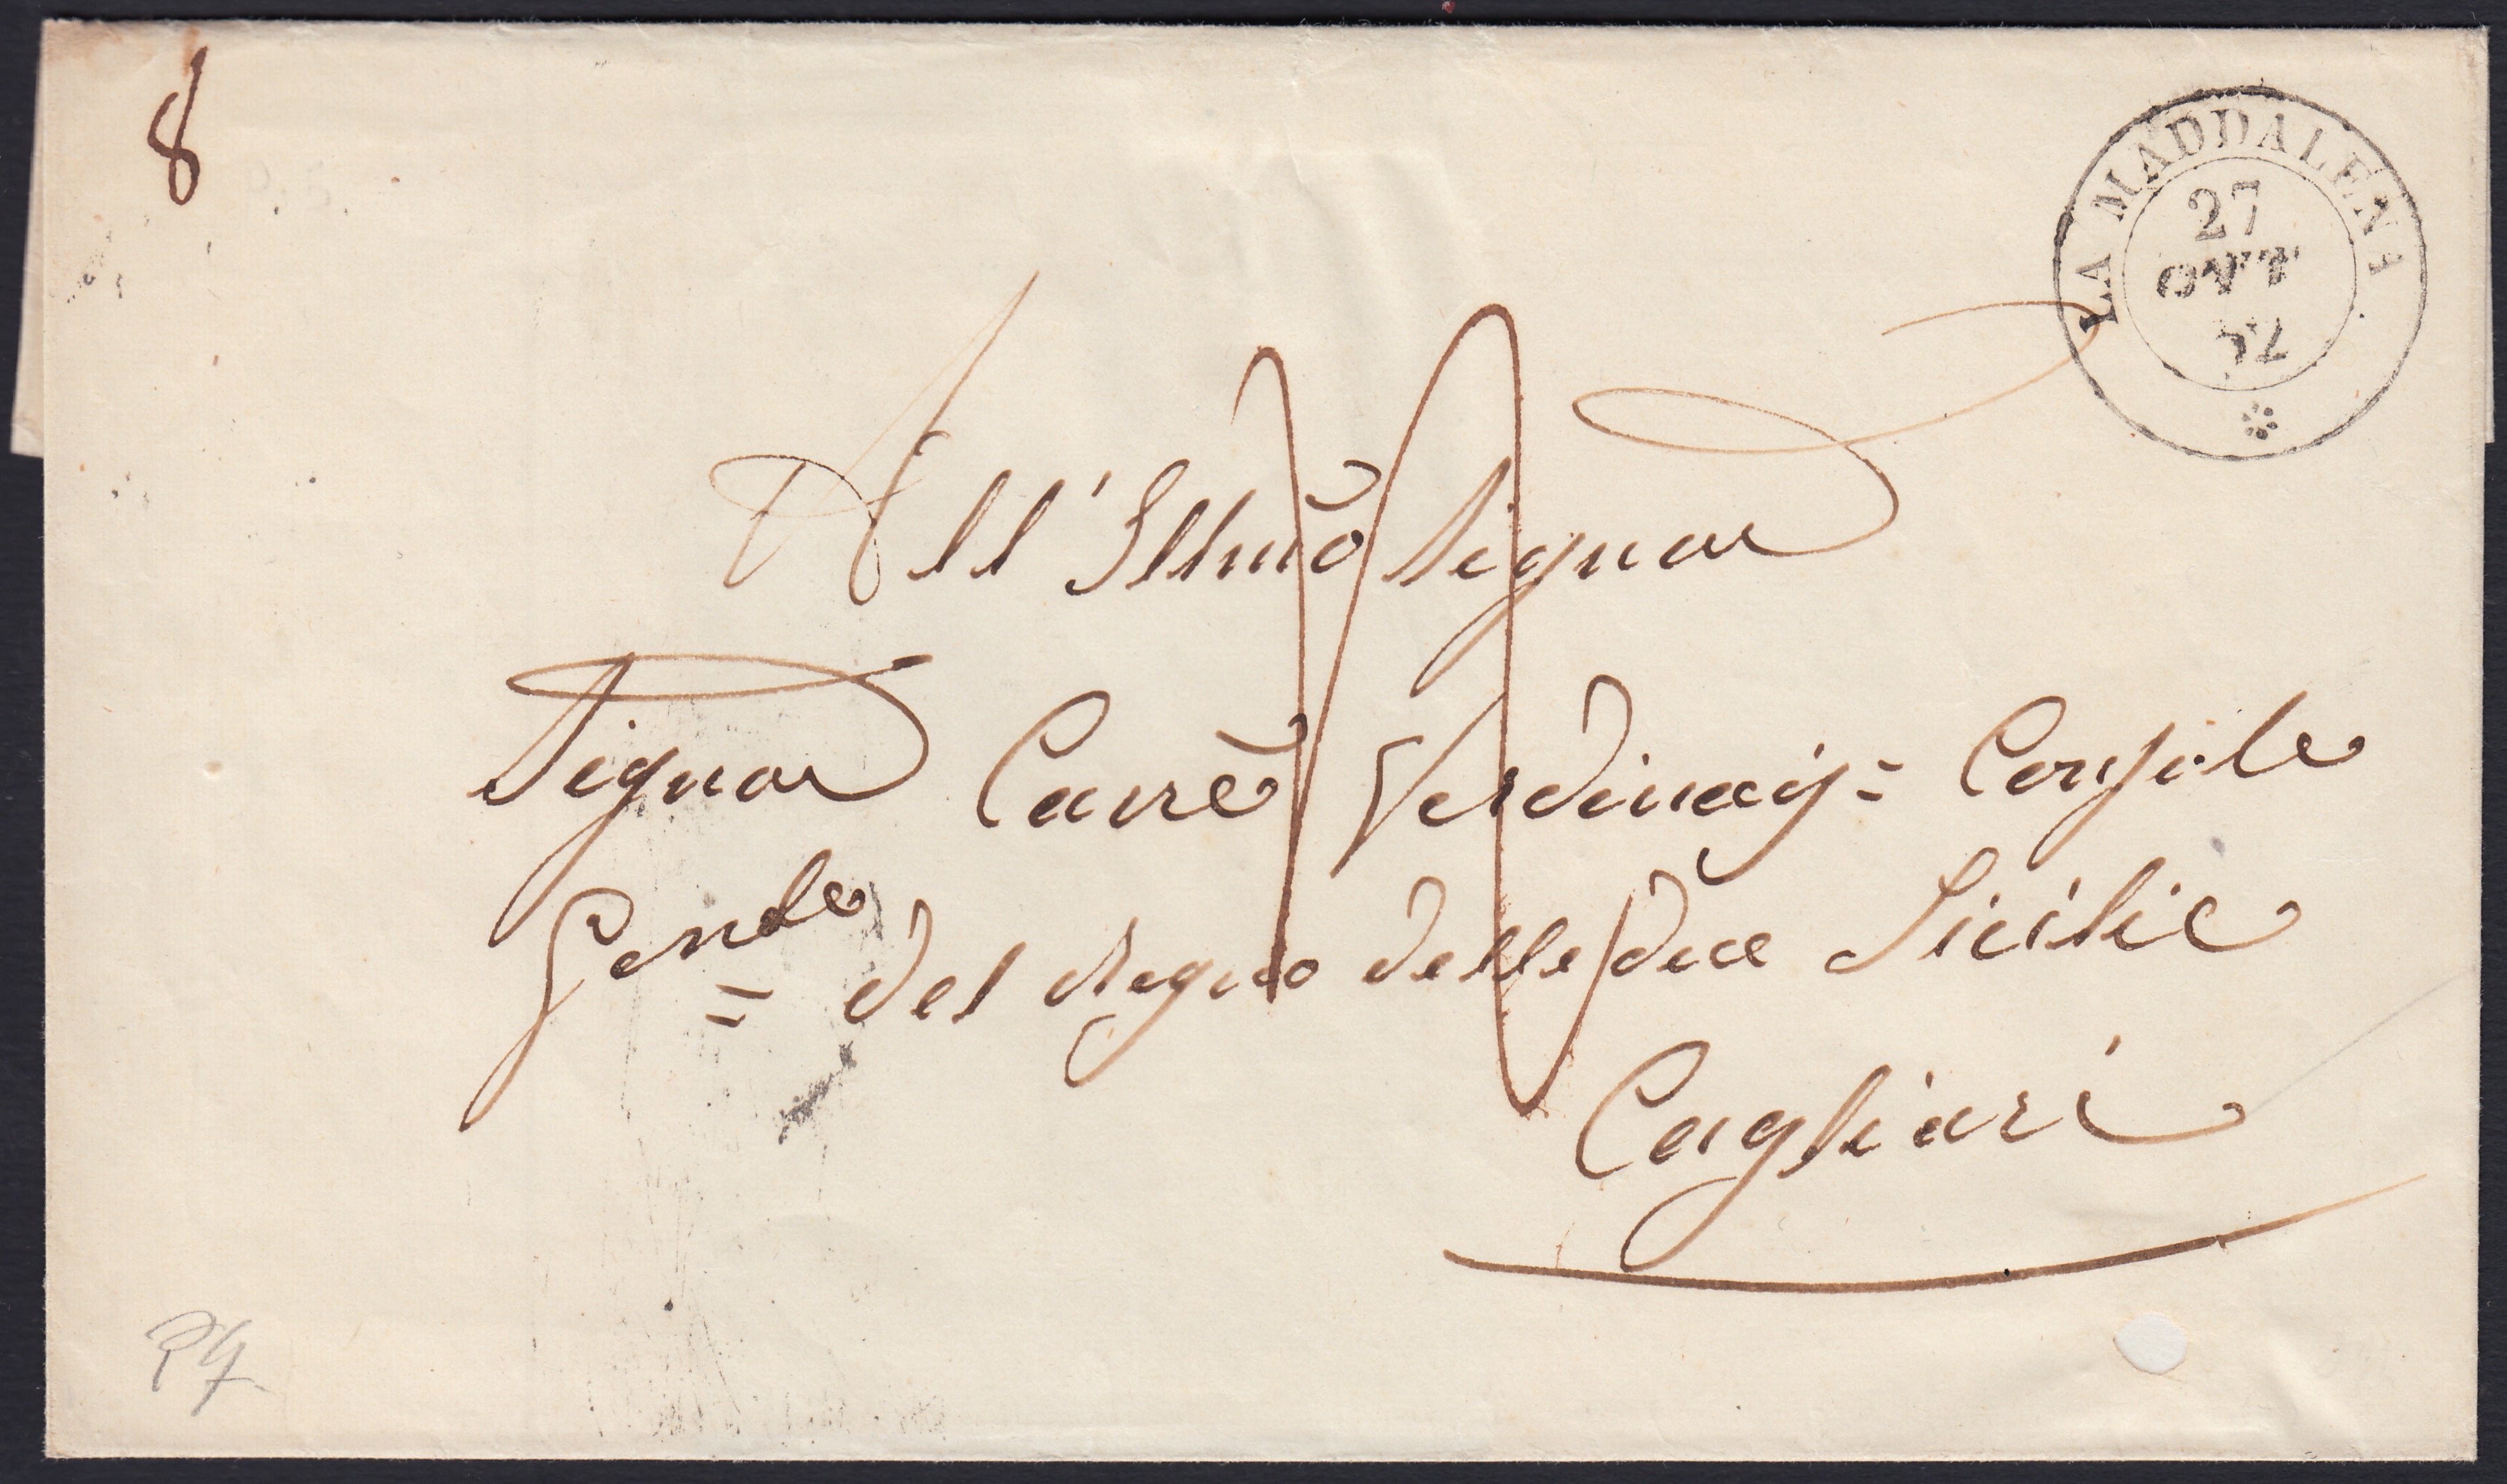 8
LA MADDALENA
27
OTT
All'Illmo Signor
Signor Cavre Verdinois = Console
Genle
= del Regno delle due Sicilie
Cagliari